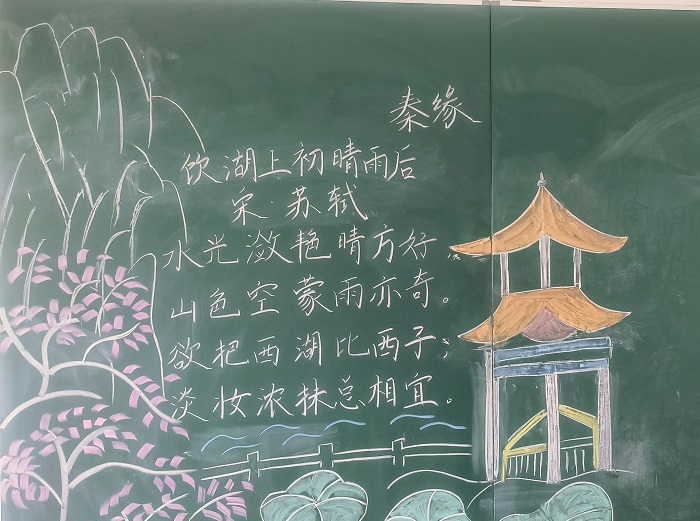 秦缘
饮湖上初晴雨后
宋·苏轼
水光潋艳晴方好，
山色空蒙雨亦奇。
欲把西湖比西子，
淡妆浓抹总相宜。